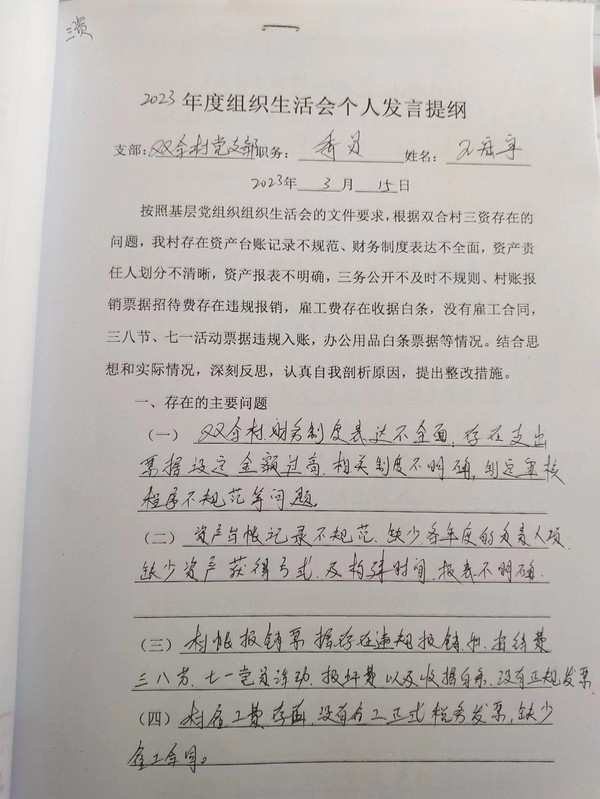 三资
2023年度组织生活会个人发言提纲
支部:双合村党支部职务:委员 姓名:
2023年3月15日
按照基层党组织组织生活会的文件要求,根据双合村三资存在的
问题,我村存在资产台账记录不规范、财务制度表达不全面,资产责
任人划分不清晰,资产报表不明确,三务公开不及时不规则、村账报
销票据招待费存在违规报销,雇工费存在收据白条,没有雇工合同,
三八节、七一活动票据违规入账,办公用品白条票据等情况。结合思
想和实际情况,深刻反思,认真自我剖析原因,提出整改措施。
一、存在的主要问题
(一)双合村财务制度表达不全面,存在支出
票据设定金额过高,相关制度不明确,制定审核
程序不规范等问题。
(二)资产台帐记录不规范、缺少各年度的负责人项
缺少资产获得方式、及构建时间,报表不明确.
(三)村帐报销票据存在违规报销如:招待费
三八节、七一党员活动、报奸费以及收据白条,没有正规发票
(四)村雇工费存在,没有雇工正式税务发票,缺少
雇工合同。